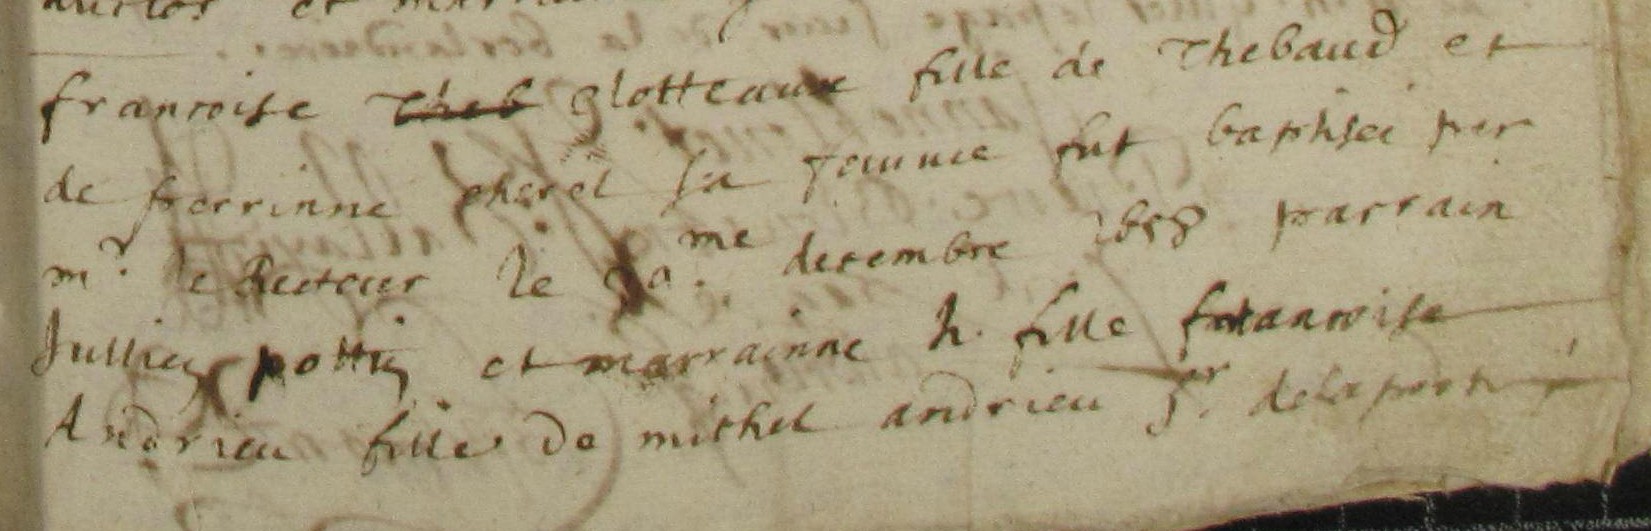 francoise Theb glotteaux fille de Thebaud et
de perrinne cherel sa femme fut baptisei par
mr. le Recteur le 30.me decembre 1658 parrain
Jullien pottin et marrainne h. fille francoise
Andrieu fille de michel andrieu Sr. de la porte